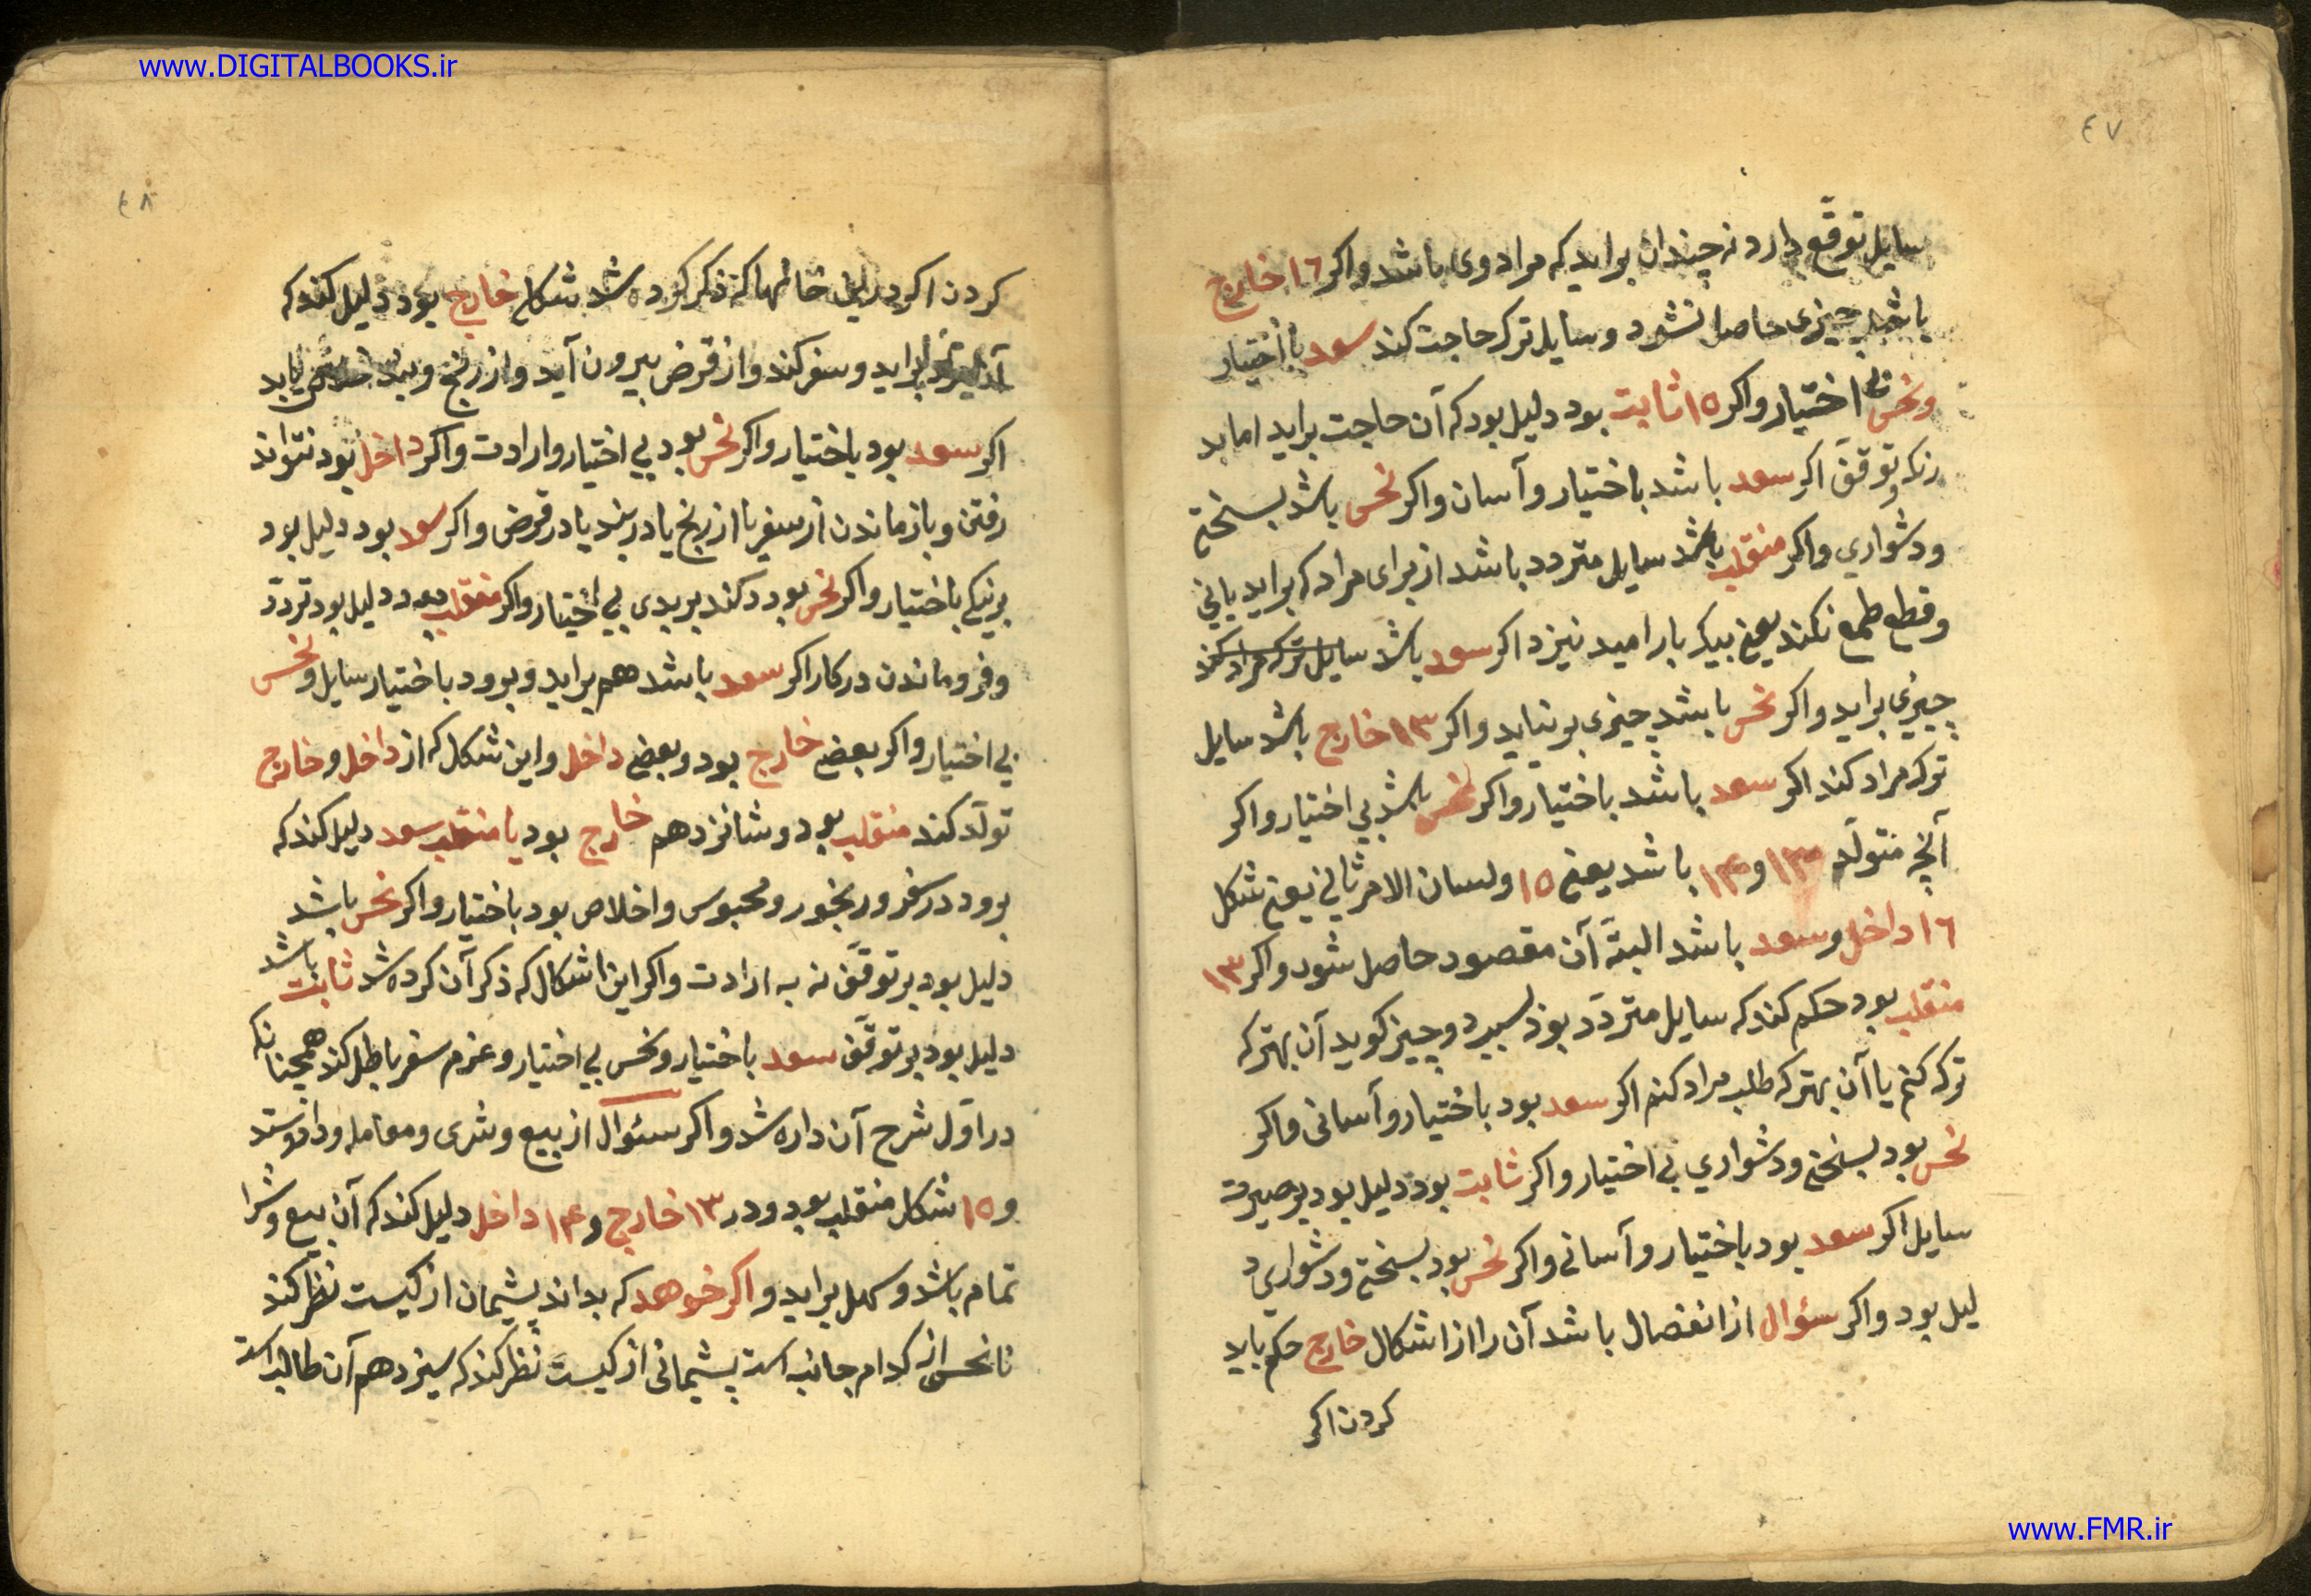 www.DIGITALBOOKS.ir
٤٧
سایل توقّع دارد نه چندان براید که مراد وی باشد واکر ١٦ خارج
باشد چیزی حاصل نشود و سایل ترک حاجت کند سعد با اختیار
ونحس بی اختیار واکر ١٥ ثابت بود دلیل بود که آن حاجت براید اما بد
رنک وتوقف اکر سعد باشد باختیار وآسان واکر نحس باشد بسختی
ودشواری واکر منقلب باشد سایل متردد باشد از برای مراد که براید یانی
وقطع طمع نکند یعنی بیکبار امید نیز د اکر سعد باشد سایل ترک مراد کند
چیزی براید واکر نحس باشد چیزی برنیاید واکر ١٣ خارج باشد سایل
ترک مراد کند اکر سعد باشد باختیار واکر نحس باشد بی اختیار واکر
آنچه متولّد ١٣ و ١٤ باشد یعنی ١٥ ولسان الامر ثانی یعنی شکل
١٦ داخل وسعد باشد البتّه آن مقصود حاصل شود واکر ١٣
منقلب بود حکم کند که سایل متردّد بود بسیر دو چیز کوید آن بهتر که
ترک کنم یا آن بهتر که طلب مراد کنم اکر سعد بود باختیار وآسانی واکر
نحس بود بسختی ودشواری بی اختیار واکر ثابت بود دلیل بود بر صیرت
سایل اکر سعد بود باختیار وآسانی واکر نحس بود بسختی ودشواری د
لیل بود واکر سؤال از انفصال باشد آن را از اشکال خارج حکم باید
کردن اکر
٤٨
کردن اکر دراین خانها که ذکر کرده شد شکل خارج بود دلیل کند که
براید وسفر کند واز قرض بیرون آید واز رنج وبند یابد
اکر سعد بود باختیار واکر نحس بود بی اختیار وارادت واکر داخل بود نتواند
رفتن وباز ماندن از سفر یا از رنج یا در بند یا در قرض واکر سعد بود دلیل بود
برنیکی باختیار واکر نحس بود کند بر بدی بی اختیار واکر منقلب بود دلیل بود تردّد
وفروماندن در کار اکر سعد باشد هم براید وبرود باختیار سایل ونحس
بی اختیار واکر بعضی خارج بود وبعضی داخل واین شکل که از داخل وخارج
تولّد کند منقلب بود وشانزدهم خارج بود یا منقلب سعد دلیل کند که
برود در سفر ورنجور ومحبوس واخلاص بود باختیار واکر نحس باشد
دلیل بود بر توقّف نه به ارادت واکر این اشکال که ذکر آن کرده شد ثابت باشد
دلیل بود بر توقّف سعد باختیار ونحس بی اختیار وعزم سفر باطل کند همچنانکه
در اوّل شرح آن داده شد واکر سئوال از بیع وشری ومعامله ودادوستد
و ١٥ شکل منقلب بود ودر ١٣ خارج و ١٤ داخل دلیل کند که آن بیع وشرا
تمام باشد وسهل براید واکر خوهد که بداند پشیمان از کیست نظر کند
تا نحس از کدام جانب است پشیمانی از کیست نظر کند که سیزدهم آن طالب است
www.FMR.ir